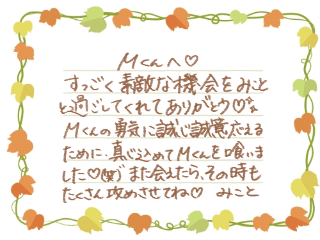 Mくんへ♡
すっごく素敵な機会をみこと
と過ごしてくれてありがとウ♡
Mくんの勇気に誠心誠意応える
ために、真心こめてMくんを喰いま
した♡(笑)また会えたら、その時も
たくさん攻めさせてね♡ みこと